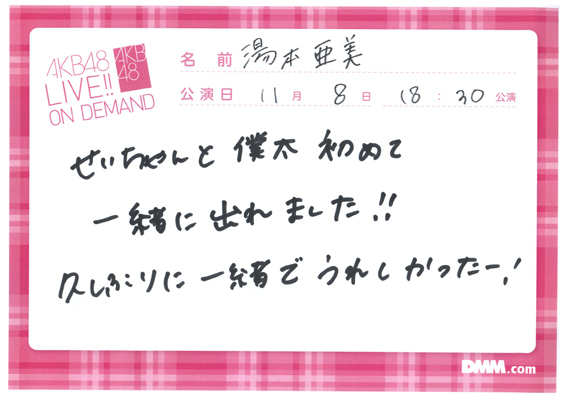 AKB48
LIVE!!
ON DEMAND
AKB
48
名前 湯本亜美
公演日 11月 8日 18:30公演
せいちゃんと 僕太 初めて
一緒に 出れました!!
久しぶりに 一緒で うれしかったー!
DMM.com